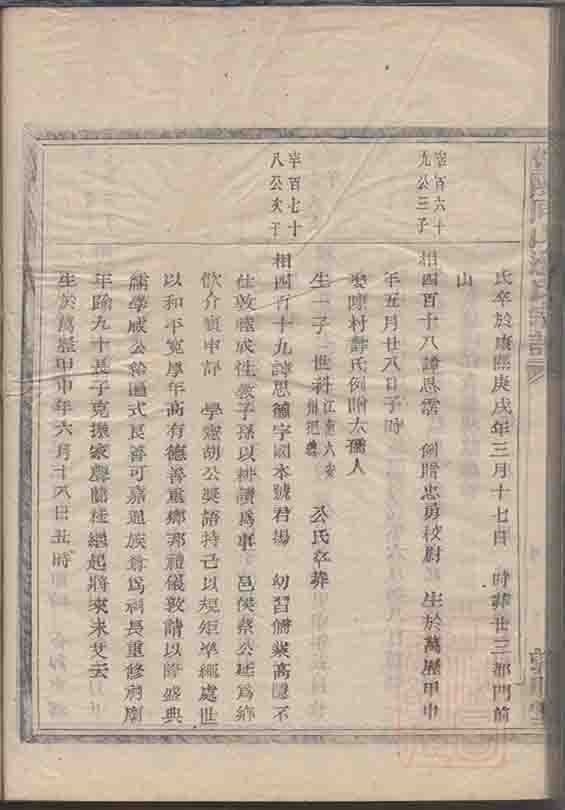 氏卒於康熙庚戌年三月十七日 時葬廿三都門前
山
宰百六十
九公三子
相四百十八諱思 例贈忠勇校尉 生於萬歷甲申
年五月廿八日子時
娶陳村 氏例贈太孺人
生一子 世科 江南六安州把總 公氏卒葬
宰百七十
八公次子
相四百十九諱思 字國本號君揚 幼習儒業高隱不
仕敦睦成性教子孫以耕讀爲事 邑侯蔡公延爲鄉
飲介賓申詳 學憲胡公奬語持己以規矩準繩處世
以和平寬厚年高有德善重鄉邦禮儀敦請以隆盛典
儒學戚公 逼式良善可嘉通族 爲祠長重修祠廟
年踰九十長子克振家聲蘭桂繼起將來未艾云
生於萬歷甲申年六月十八日丑時